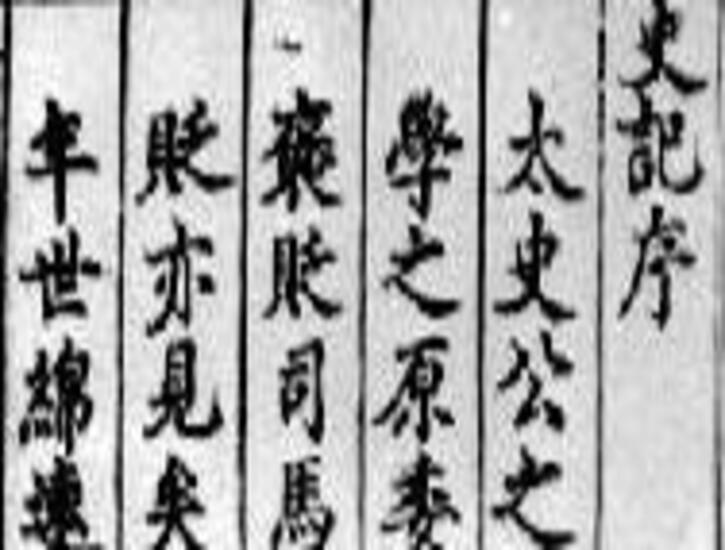 史記序
太史公之
學之原委
褒貶司馬
貶亦見矣
年世綿連